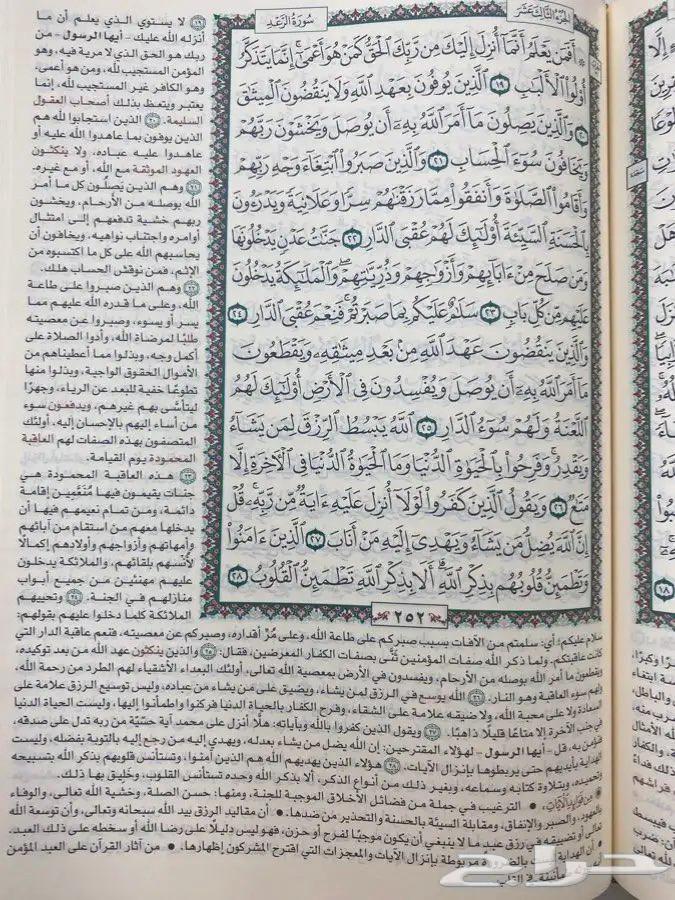 الجزء الثالث عشر
سورة الرعد
۞ أَفَمَن يَعْلَمُ أَنَّمَآ أُنزِلَ إِلَيْكَ مِن رَّبِّكَ ٱلْحَقُّ كَمَنْ هُوَ أَعْمَىٰٓ إِنَّمَا يَتَذَكَّرُ
أُو۟لُوا۟ ٱلْأَلْبَٰبِ ١٩ ٱلَّذِينَ يُوفُونَ بِعَهْدِ ٱللَّهِ وَلَا يَنقُضُونَ ٱلْمِيثَٰقَ
٢٠ وَٱلَّذِينَ يَصِلُونَ مَآ أَمَرَ ٱللَّهُ بِهِۦٓ أَن يُوصَلَ وَيَخْشَوْنَ رَبَّهُمْ
وَيَخَافُونَ سُوٓءَ ٱلْحِسَابِ ٢١ وَٱلَّذِينَ صَبَرُوا۟ ٱبْتِغَآءَ وَجْهِ رَبِّهِمْ
وَأَقَامُوا۟ ٱلصَّلَوٰةَ وَأَنفَقُوا۟ مِمَّا رَزَقْنَٰهُمْ سِرًّا وَعَلَانِيَةً وَيَدْرَءُونَ
بِٱلْحَسَنَةِ ٱلسَّيِّئَةَ أُو۟لَٰٓئِكَ لَهُمْ عُقْبَى ٱلدَّارِ ٢٢ جَنَّٰتُ عَدْنٍ يَدْخُلُونَهَا
وَمَن صَلَحَ مِنْ ءَابَآئِهِمْ وَأَزْوَٰجِهِمْ وَذُرِّيَّٰتِهِمْ وَٱلْمَلَٰٓئِكَةُ يَدْخُلُونَ
عَلَيْهِم مِّن كُلِّ بَابٍ ٢٣ سَلَٰمٌ عَلَيْكُم بِمَا صَبَرْتُمْ فَنِعْمَ عُقْبَى ٱلدَّارِ ٢٤
وَٱلَّذِينَ يَنقُضُونَ عَهْدَ ٱللَّهِ مِنۢ بَعْدِ مِيثَٰقِهِۦ وَيَقْطَعُونَ
مَآ أَمَرَ ٱللَّهُ بِهِۦٓ أَن يُوصَلَ وَيُفْسِدُونَ فِى ٱلْأَرْضِ أُو۟لَٰٓئِكَ لَهُمُ
ٱللَّعْنَةُ وَلَهُمْ سُوٓءُ ٱلدَّارِ ٢٥ ٱللَّهُ يَبْسُطُ ٱلرِّزْقَ لِمَن يَشَآءُ
وَيَقْدِرُ وَفَرِحُوا۟ بِٱلْحَيَوٰةِ ٱلدُّنْيَا وَمَا ٱلْحَيَوٰةُ ٱلدُّنْيَا فِى ٱلْءَاخِرَةِ إِلَّا
مَتَٰعٌ ٢٦ وَيَقُولُ ٱلَّذِينَ كَفَرُوا۟ لَوْلَآ أُنزِلَ عَلَيْهِ ءَايَةٌ مِّن رَّبِّهِۦ قُلْ
إِنَّ ٱللَّهَ يُضِلُّ مَن يَشَآءُ وَيَهْدِىٓ إِلَيْهِ مَنْ أَنَابَ ٢٧ ٱلَّذِينَ ءَامَنُوا۟
وَتَطْمَئِنُّ قُلُوبُهُم بِذِكْرِ ٱللَّهِ أَلَا بِذِكْرِ ٱللَّهِ تَطْمَئِنُّ ٱلْقُلُوبُ ٢٨
٢٥٢
١٩ لا يستوي الذي يعلم أن ما
أنزله الله عليك - أيها الرسول - من
ربك هو الحق الذي لا مرية فيه، وهو
المؤمن المستجيب لله، ومن هو أعمى،
وهو الكافر غير المستجيب لله، إنما
يعتبر ويتعظ بذلك أصحاب العقول
السليمة. ٢٠ الذين استجابوا لله هم
الذين يوفون بما عاهدوا الله عليه أو
عاهدوا عليه عباده، ولا ينكثون
العهود الموثقة مع الله، أو مع غيره.
٢١ وهم الذين يَصِلُون كل ما أمر
الله بوصله من الأرحام، ويخشون
ربهم خشية تدفعهم إلى امتثال
أوامره واجتناب نواهيه، ويخافون أن
يحاسبهم الله على كل ما اكتسبوه من
الإثم، فمن نوقش الحساب هلك.
٢٢ وهم الذين صبروا على طاعة
الله، وعلى ما قدره الله عليهم مما
يسر أو يسوء، وصبروا عن معصيته
طلبًا لمرضاة الله، وأدوا الصلاة على
أكمل وجه، وبذلوا مما أعطيناهم من
الأموال الحقوق الواجبة، وبذلوا منها
تطوعًا خفية للبعد عن الرياء، وجهرًا
ليتأسَّى بهم غيرهم، ويدفعون سوء
من أساء إليهم بالإحسان إليه. أولئك
المتصفون بهذه الصفات لهم العاقبة
المحمودة يوم القيامة.
٢٣ هذه العاقبة المحمودة هي
جنات يقيمون فيها مُنَعَّمِين إقامة
دائمة، ومن تمام نعيمهم فيها أن
يدخلها معهم من استقام من آبائهم
وأمهاتهم وأزواجهم وأولادهم إكمالًا
لأُنْسهم بلقائهم، والملائكة يدخلون
عليهم مهنئين من جميع أبواب
منازلهم في الجنة. ٢٤ وتحييهم
الملائكة كلما دخلوا عليهم بقولهم:
سلام عليكم؛ أي: سلمتم من الآفات بسبب صبركم على طاعة الله، وعلى مُرِّ أقداره، وصبركم عن معصيته، فنعم عاقبة الدار التي
كانت عاقبتكم. ولما ذكر الله صفات المؤمنين ثَنَّى بصفات الكفار المعرضين، فقال: ٢٥ والذين ينكثون عهد الله من بعد توكيده،
ويقطعون ما أمر الله بوصله من الأرحام، ويفسدون في الأرض بمعصية الله تعالى، أولئك البعداء الأشقياء لهم الطرد من رحمة الله،
ولهم سوء العاقبة وهو النار. ٢٦ الله يوسع في الرزق لمن يشاء، ويضيق على من يشاء من عباده، وليس توسيع الرزق علامة على
السعادة ولا على محبة الله، ولا ضيقه علامة على الشقاء، وفرح الكفار بالحياة الدنيا فركنوا واطمأنوا إليها، وليست الحياة الدنيا
في جنب الآخرة إلا متاعًا قليلًا ذاهبًا. ٢٧ ويقول الذين كفروا بالله وبآياته: هلّا أنزل على محمد آية حسّيّة من ربه تدل على صدقه،
فنؤمن به، قل - أيها الرسول - لهؤلاء المقترحين: إن الله يضل من يشاء بعدله، ويهدي إليه من رجع إليه بالتوبة بفضله، وليست
الهداية بأيديهم حتى يربطوها بإنزال الآيات. ٢٨ هؤلاء الذين يهديهم الله هم الذين آمنوا، وتستأنس قلوبهم بذكر الله بتسبيحه
وتحميده، وبتلاوة كتابه وسماعه، وبغير ذلك من أنواع الذكر، ألا بذكر الله وحده تستأنس القلوب، وخَليق بها ذلك.
من فوائد الآيات: • الترغيب في جملة من فضائل الأخلاق الموجبة للجنة، ومنها: حسن الصلة، وخشية الله تعالى، والوفاء
بالعهود، والصبر والإنفاق، ومقابلة السيئة بالحسنة والتحذير من ضدها. • أن مقاليد الرزق بيد الله سبحانه وتعالى، وأن توسعة الله
تعالى أو تضييقه في رزق عبدٍ ما لا ينبغي أن يكون موجبًا لفرح أو حزن، فهو ليس دليلًا على رضا الله أو سخطه على ذلك العبد.
• أن الهداية ليست بالضرورة مربوطة بإنزال الآيات والمعجزات التي اقترح المشركون إظهارها. • من آثار القرآن على العبد المؤمن
حراج